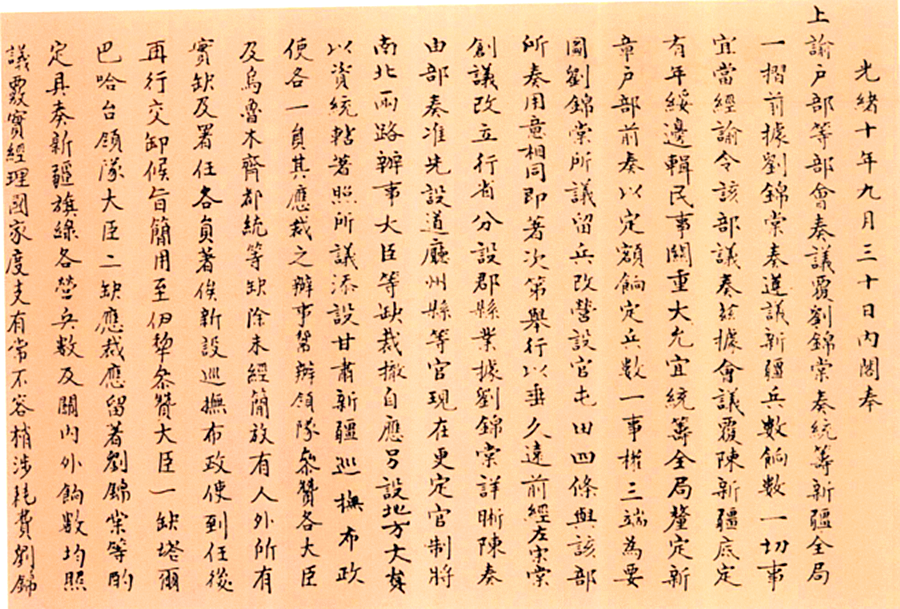 光緒十年九月三十日内閣奉
上諭户部等部會奏議覆劉錦棠奏統籌新疆全局
一摺前據劉錦棠奏遵議新疆兵數餉數一切事
宜當經諭令該部議奏茲據會議覆陳新疆底定
有年綏邊輯民事關重大允宜統籌全局釐定新
章户部前奏以定額餉定兵數一事權三端為要
圖劉錦棠所議留兵改營設官屯田四條與該部
所奏用意相同即著次第舉行以垂久遠前經左宗棠
創議改立行省分設郡縣業據劉錦棠詳晰陳奏
由部奏准先設道廳州縣等官現在更定官制將
南北兩路辦事大臣等缺裁撤自應另設地方大員
以資統轄著照所議添設甘肅新疆巡撫布政
使各一員其應裁之辦事幫辦領隊參贊各大臣
及烏魯木齊都統等缺除未經簡放有人外所有
實缺及署任各員著俟新設巡撫布政使到任後
再行交卸候旨簡用至伊犂參贊大臣一缺塔爾
巴哈台領隊大臣二缺應裁應留著劉錦棠等酌
定具奏新疆旗綠各營兵數及關内外餉數均照
議覈實經理國家度支有常不容稍涉耗費劉錦